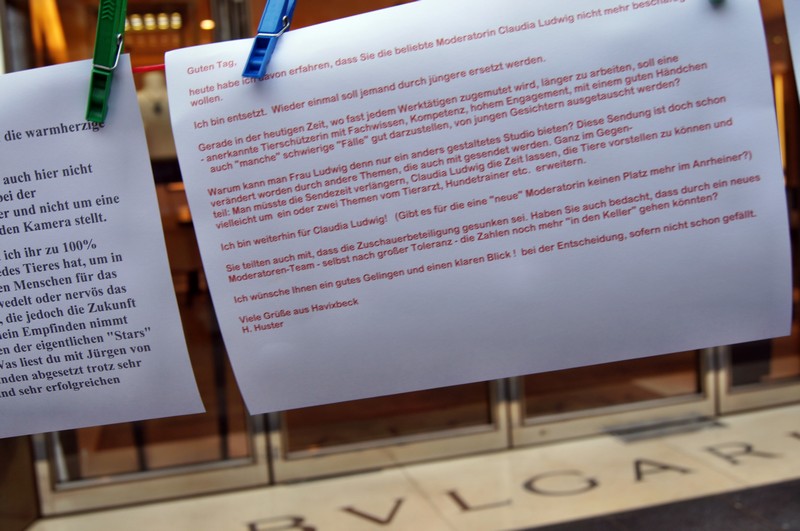 die warmherzige
auch hier nicht
bei der
er und nicht um eine
den Kamera stellt.
ich ihr zu 100%
edes Tieres hat, um in
en Menschen für das
wedelt oder nervös das
, die jedoch die Zukunft
nein Empfinden nimmt
en der eigentlichen "Stars"
Was liest du mit Jürgen von
nden abgesetzt trotz sehr
nd sehr erfolgreichen
Guten Tag,
heute habe ich davon erfahren, dass Sie die beliebte Moderatorin Claudia Ludwig nicht mehr
wollen.
Ich bin entsetzt. Wieder einmal soll jemand durch jüngere ersetzt werden.
Gerade in der heutigen Zeit, wo fast jedem Werktätigen zugemutet wird, länger zu arbeiten, soll eine
- anerkannte Tierschützerin mit Fachwissen, Kompetenz, hohem Engagement, mit einem guten Händchen
auch "manche" schwierige "Fälle" gut darzustellen, von jungen Gesichtern ausgetauscht werden?
Warum kann man Frau Ludwig denn nur ein anders gestaltetes Studio bieten? Diese Sendung ist doch schon
verändert worden durch andere Themen, die auch mit gesendet werden. Ganz im Gegen-
teil: Man müsste die Sendezeit verlängern, Claudia Ludwig die Zeit lassen, die Tiere vorstellen zu können und
vielleicht um ein oder zwei Themen vom Tierarzt, Hundetrainer etc. erweitern.
Ich bin weiterhin für Claudia Ludwig! (Gibt es für die eine "neue" Moderatorin keinen Platz mehr im Anrheiner?)
Sie teilten auch mit, dass die Zuschauerbeteiligung gesunken sei. Haben Sie auch bedacht, dass durch ein neues
Moderatoren-Team - selbst nach großer Toleranz - die Zahlen noch mehr "in den Keller" gehen könnten?
Ich wünsche Ihnen ein gutes Gelingen und einen klaren Blick ! bei der Entscheidung, sofern nicht schon gefällt.
Viele Grüße aus Havixbeck
H. Huster
BVLGARI